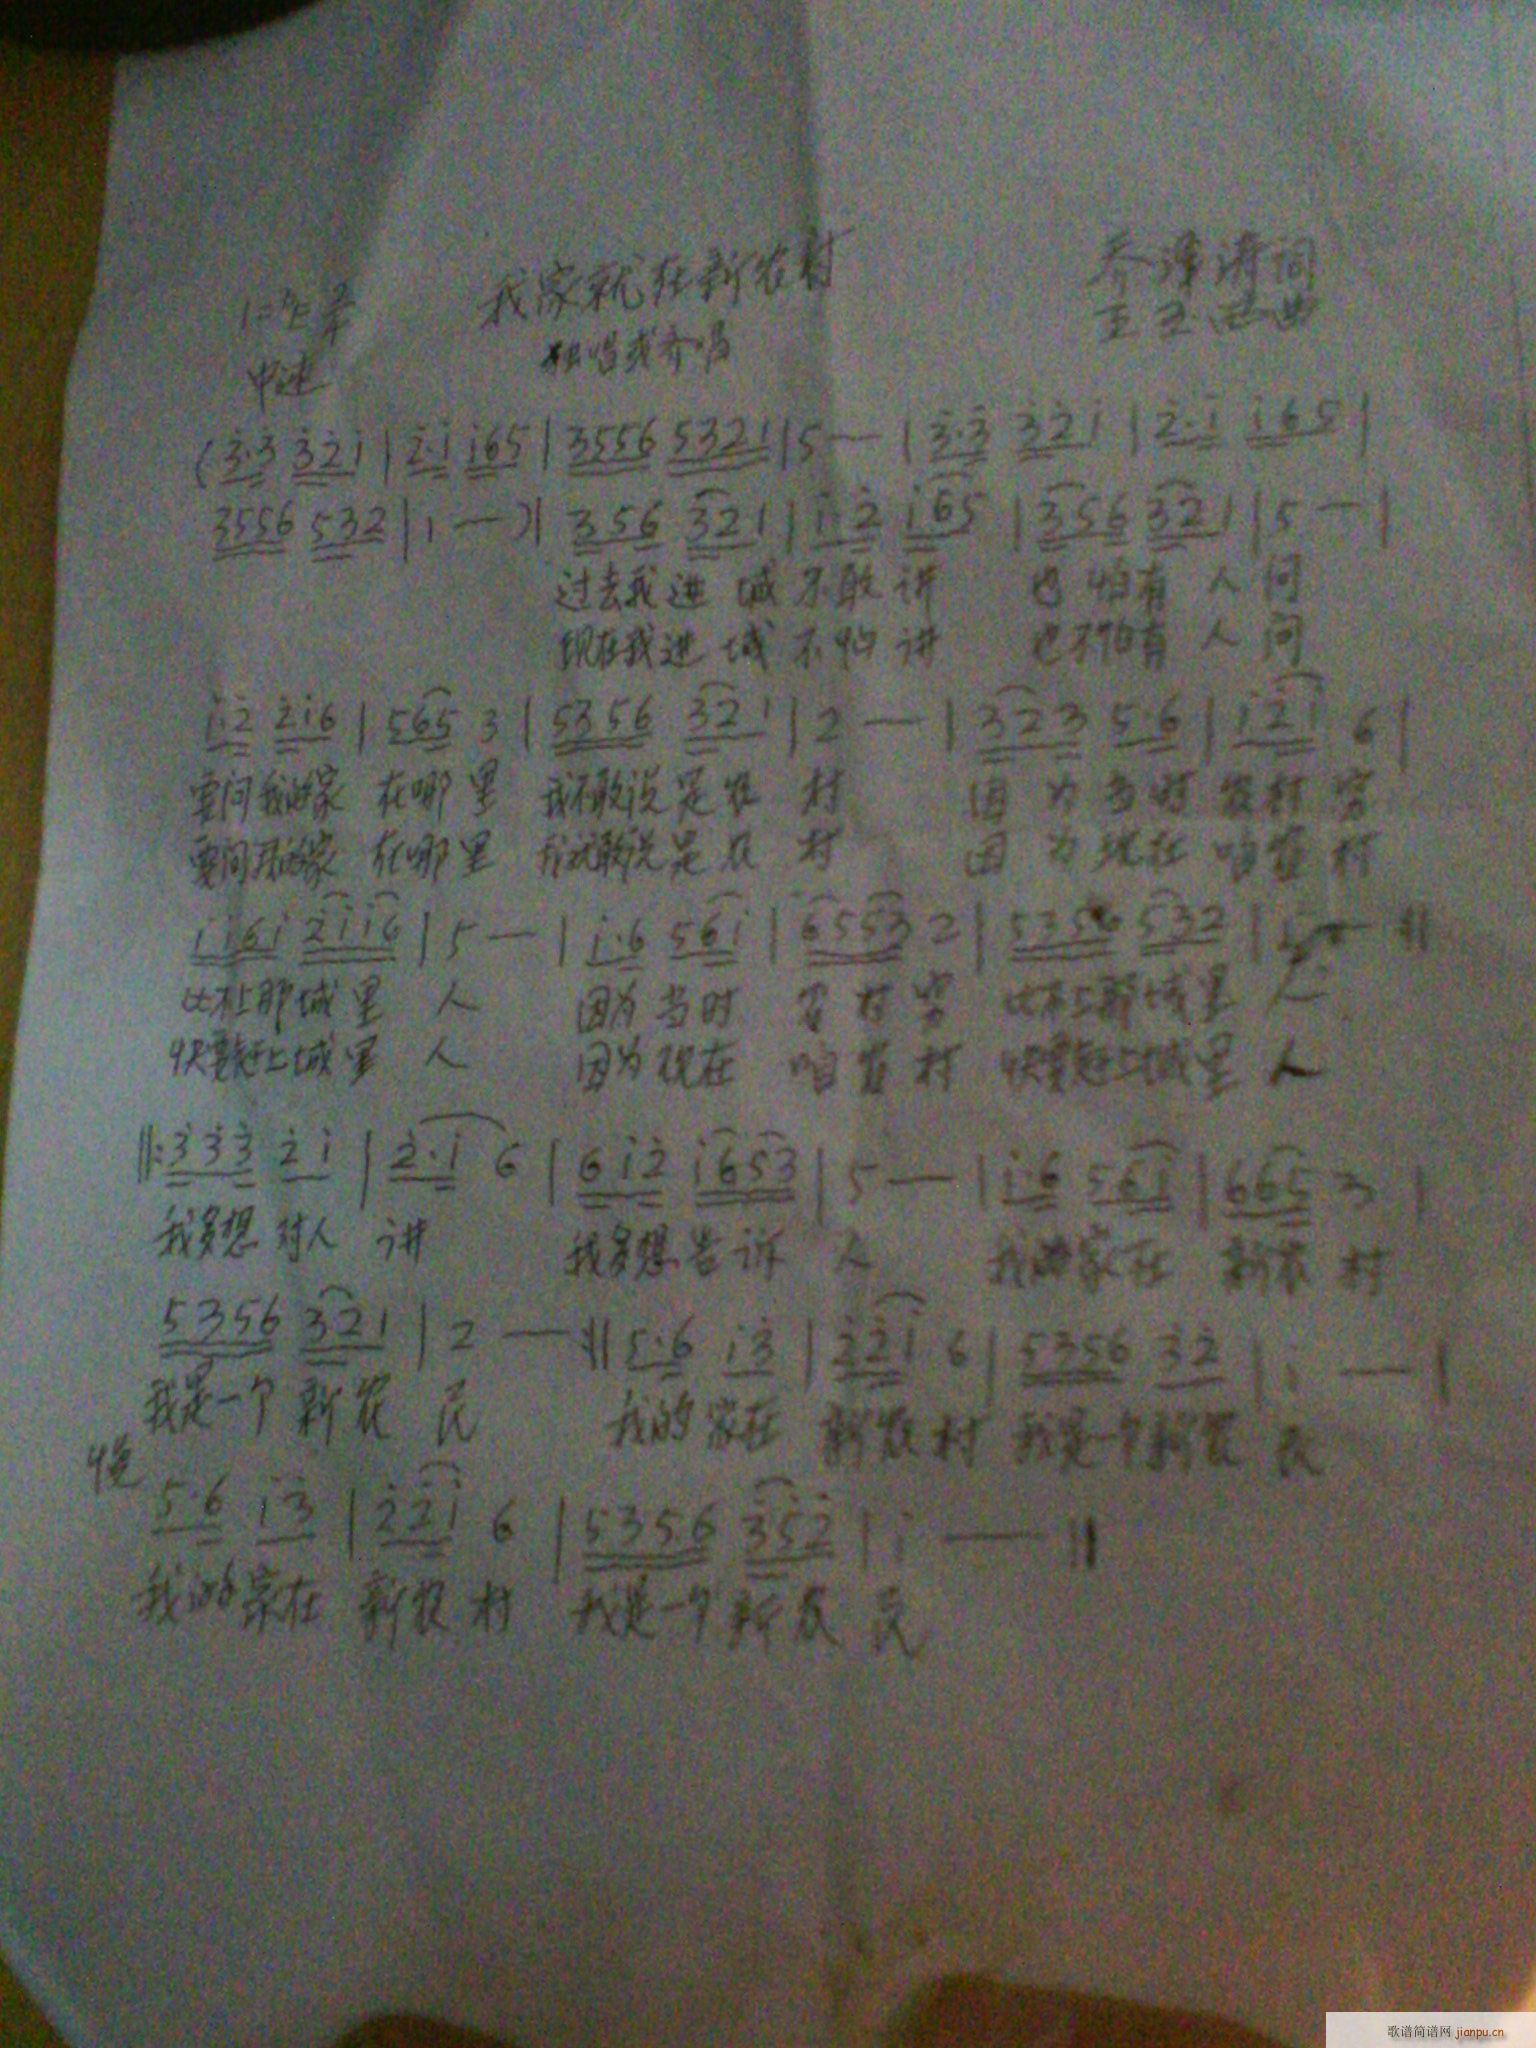 我家就在新农村
乔泽涛词
独唱或齐唱
中速
(3·3 321 | 2·1 165 | 3556 5321 | 5 — | 3·3 321 | 2·1 165 |
3556 532 | 1 — ) | 356 321 | 1·2 165 | 356 321 | 5 — |
过去我进城不敢讲 也怕有人问
现在我进城不怕讲 也不怕有人问
1·2 216 | 565 3 | 5356 321 | 2 — | 323 5·6 | 121 6 |
要问我的家在哪里 我不敢说是农村 因为当时农村穷
要问我的家在哪里 我就敢说是农村 因为现在咱农村
1161 2116 | 5 — | 1·6 561 | 6553 2 | 5356 532 |
比不上那城里人 因为当时农村穷 比不上那城里人
快要赶上城里人 因为现在咱农村 快要赶上城里人
‖: 333 21 | 2·1 6 | 612 1653 | 5 — | 1·6 561 | 665 3 |
我多想对人讲 我多想告诉人 我的家在新农村
5356 321 | 2 — :‖ 5·6 13 | 221 6 | 5356 32 | 1 — |
我是一个新农民 我的家在新农村 我是一个新农民
慢
5·6 13 | 221 6 | 5356 352 | 1 — ‖
我的家在新农村 我是一个新农民
歌谱简谱网 jianpu.cn